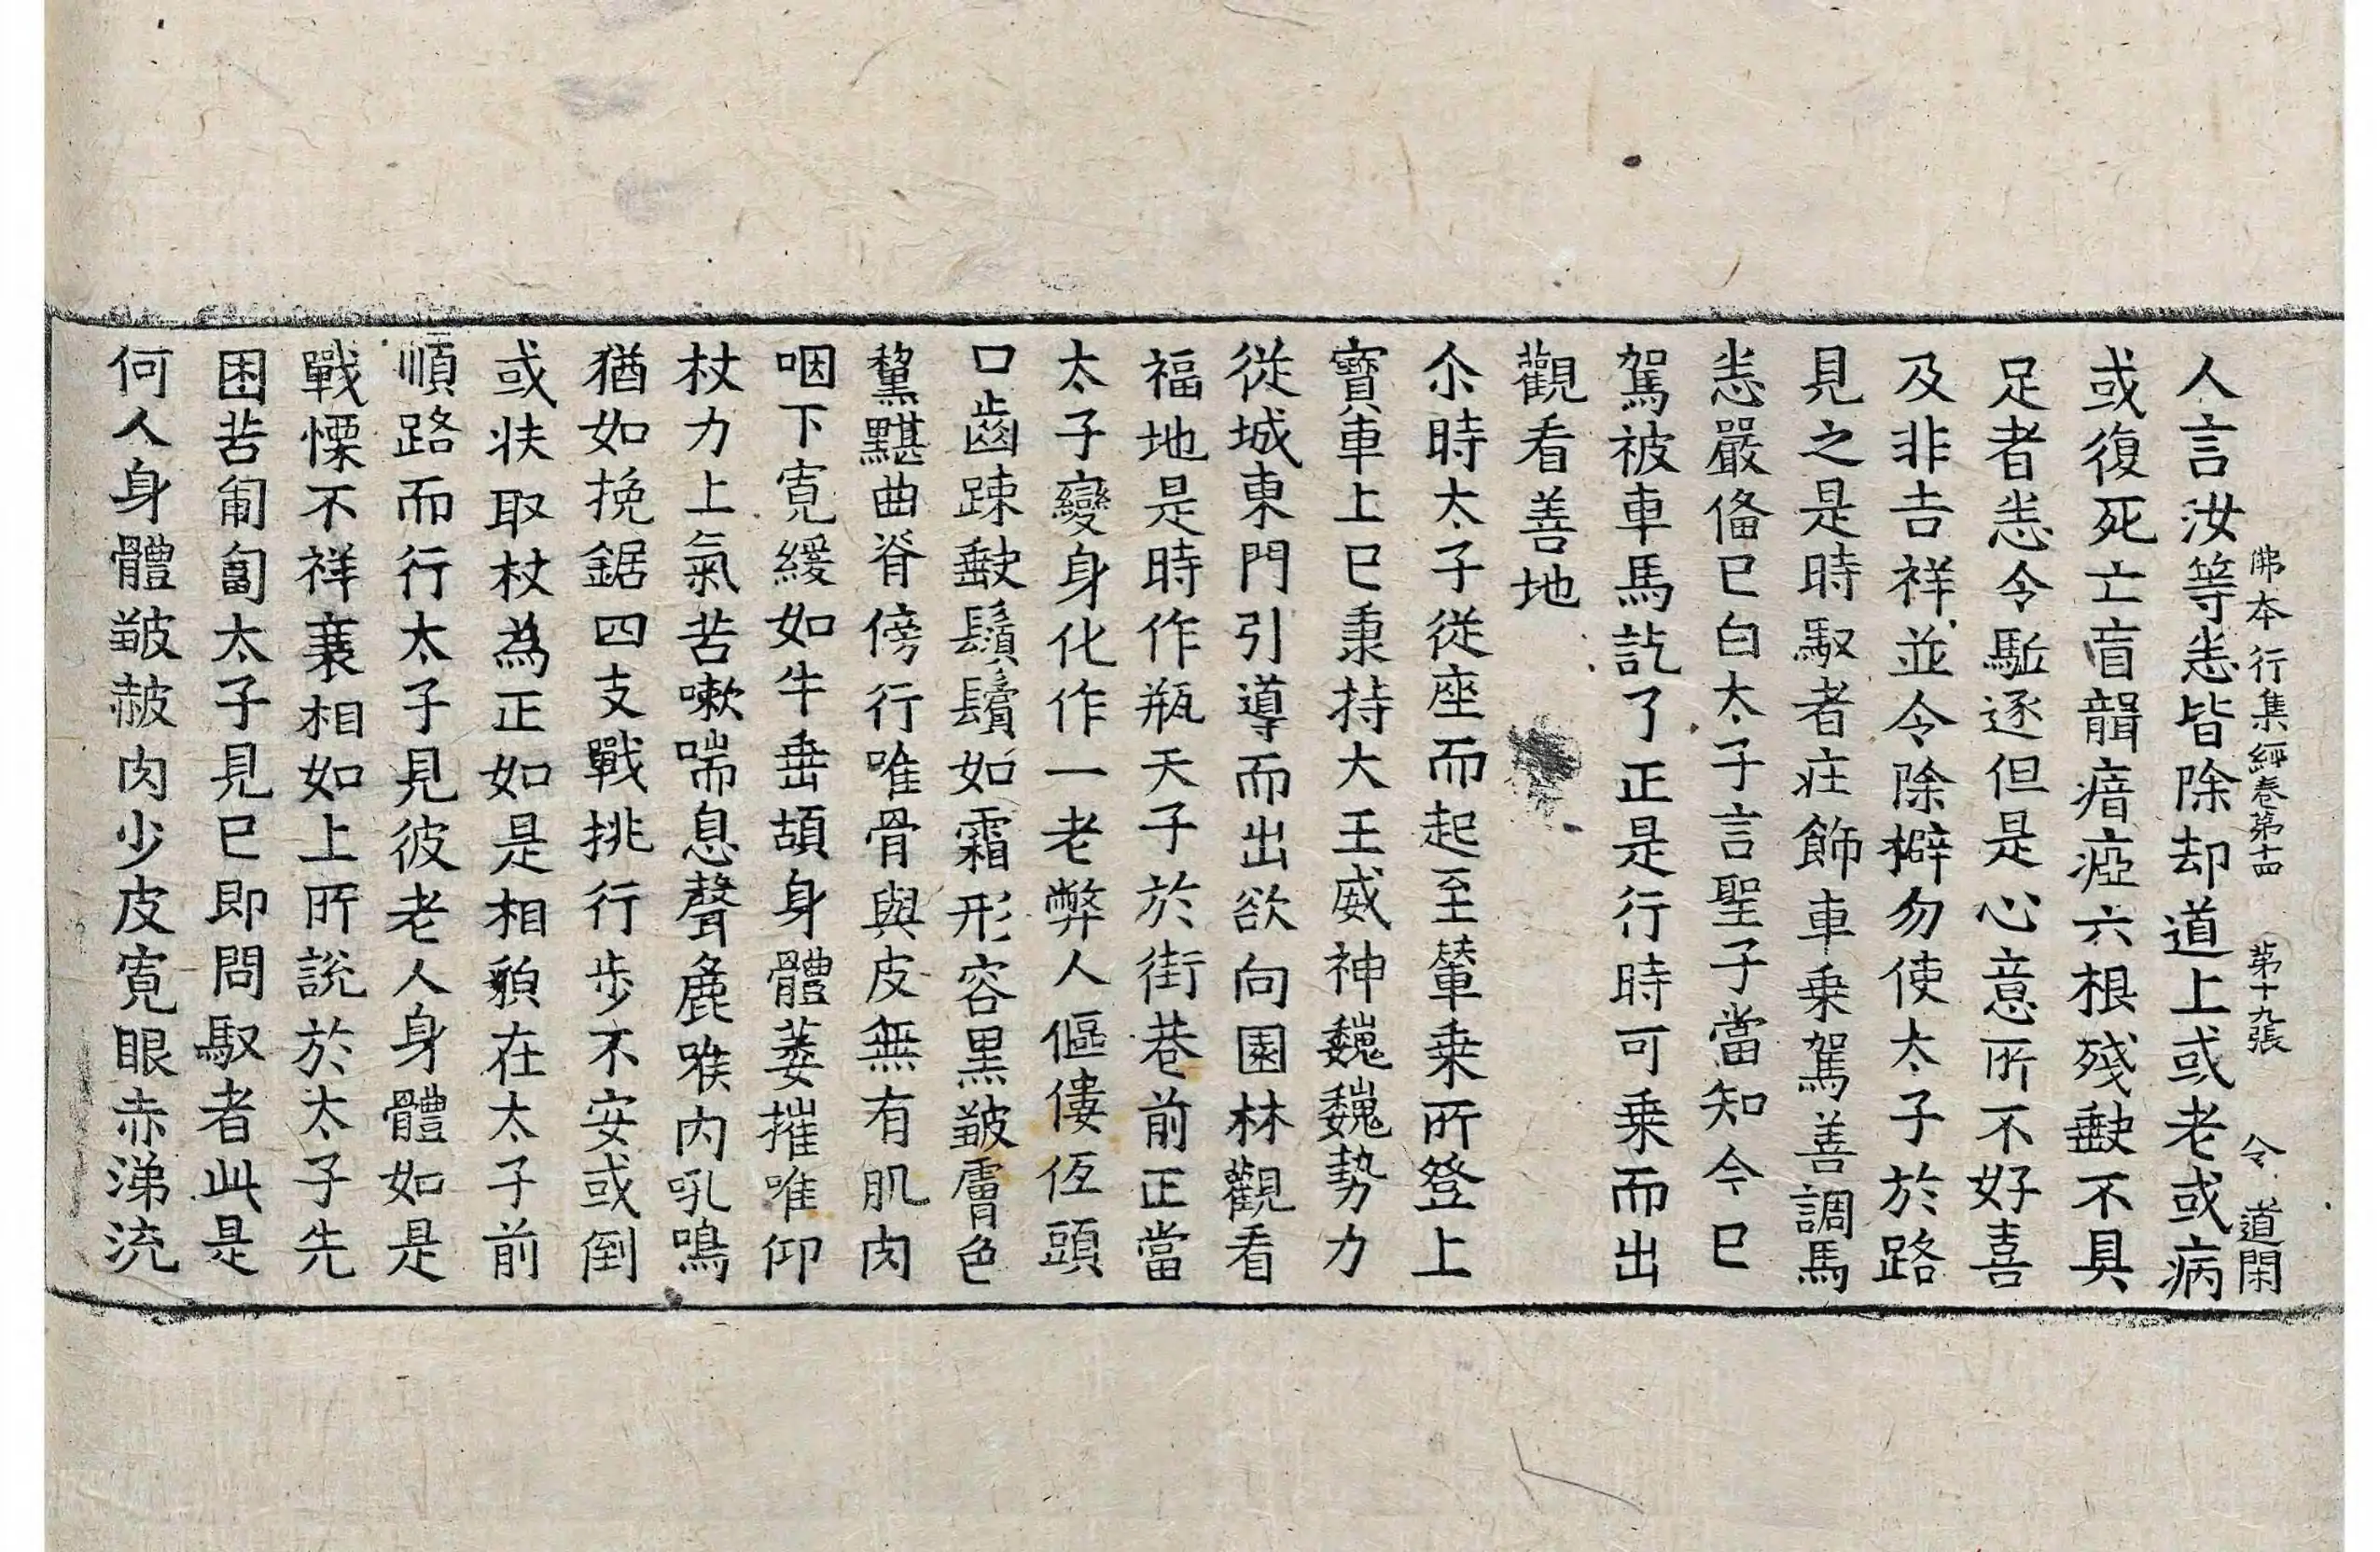 佛本行集經卷第十四 第十九張 令 道閑
人言汝等恙皆除却道上或老或病
或復死亡盲聾瘖瘂六根殘𡙇不具
足者恙令駈逐但是心意所不好喜
及非吉祥並令除擗勿使太子於路
見之是時馭者庄飾車乗駕善調馬
恙嚴俻已白太子言聖子當知今已
駕被車馬訖了正是行時可乗而出
觀看善地
尒時太子從座而起至輦乗所登上
寳車上已秉持大王威神巍巍勢力
從城東門引導而出欲向園林觀看
福地是時作瓶天子於街巷前正當
太子變身化作一老弊人傴僂伍頭
口齒踈𡙇鬚鬢如霜形容黒皺膚色
黧黮曲脊傍行唯骨與皮無有肌肉
咽下寛緩如牛垂頡身體萎摧唯仰
杖力上氣苦嗽喘息聲麁喉内吼鳴
猶如挽鋸四支戰挑行步不安或倒
或扶取杖為正如是相貌在太子前
順路而行太子見彼老人身體如是
戰慄不祥衰相如上所説於太子先
困苦匍匐太子見已即問馭者此是
何人身體皺赧肉少皮寛眼赤涕流